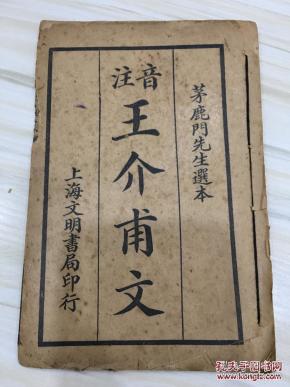 茅鹿門先生選本
音注
王介甫文
上海文明書局印行
孔夫子旧书网